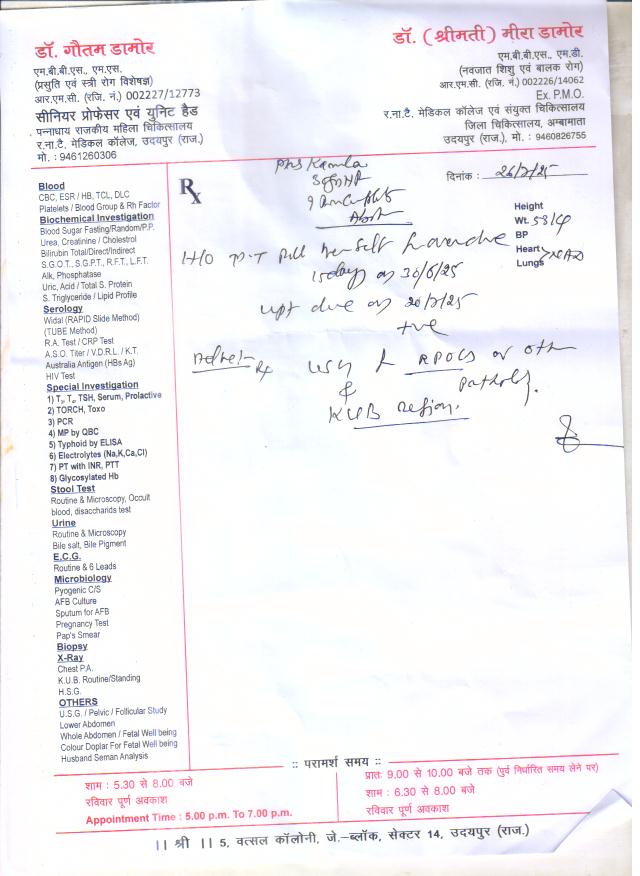 डॉ. गौतम डामोर
एम.बी.बी.एस., एम.एस.
(प्रसुति एवं स्त्री रोग विशेषज्ञ)
आर.एम.सी. (रजि. नं.) 002227/12773
सीनियर प्रोफेसर एवं युनिट हैड
पन्नाधाय राजकीय महिला चिकित्सालय
र.ना.टै. मेडिकल कॉलेज, उदयपुर (राज.)
मो. : 9461260306
डॉ. (श्रीमती) मीरा डामोर
एम.बी.बी.एस., एम.डी.
(नवजात शिशु एवं बालक रोग)
आर.एम.सी. (रजि. नं.) 002226/14062
Ex. P.M.O.
र.ना.टै. मेडिकल कॉलेज एवं संयुक्त चिकित्सालय
जिला चिकित्सालय, अम्बामाता
उदयपुर (राज.), मो. : 9460826755
Blood
CBC, ESR / HB, TCL, DLC
Platelets / Blood Group & Rh Factor
Biochemical Investigation
Blood Sugar Fasting/Random/P.P.
Urea, Creatinine / Cholestrol
Bilirubin Total/Direct/Indirect
S.G.O.T., S.G.P.T., R.F.T., L.F.T.
Alk, Phosphatase
Uric, Acid / Total S. Protein
S. Triglyceride / Lipid Profile
Serology
Widal (RAPID Slide Method)
(TUBE Method)
R.A. Test / CRP Test
A.S.O. Titer / V.D.R.L. / K.T.
Australia Antigen (HBs Ag)
HIV Test
Special Investigation
1) T3, T4, TSH, Serum, Prolactive
2) TORCH, Toxo
3) PCR
4) MP by QBC
5) Typhoid by ELISA
6) Electrolytes (Na,K,Ca,Cl)
7) PT with INR, PTT
8) Glycosylated Hb
Stool Test
Routine & Microscopy, Occult
blood, disaccharids test
Urine
Routine & Microscopy
Bile salt, Bile Pigment
E.C.G.
Routine & 6 Leads
Microbiology
Pyogenic C/S
AFB Culture
Sputum for AFB
Pregnancy Test
Pap's Smear
Biopsy
X-Ray
Chest P.A.
K.U.B. Routine/Standing
H.S.G.
OTHERS
U.S.G. / Pelvic / Follicular Study
Lower Abdomen
Whole Abdomen / Fetal Well being
Colour Doplar For Fetal Well being
Husband Seman Analysis
Rx
Kamla
दिनांक :
Height
Wt. 58
BP
Heart
Lungs NAD
H/O pill her self
15 days on 30/6/25
upt due on 20/7/25
+ve
Advice
Rx USG for RPOCS or oth
& pathology.
KUB region.
:: परामर्श समय ::
शाम : 5.30 से 8.00 बजे
रविवार पूर्ण अवकाश
Appointment Time : 5.00 p.m. To 7.00 p.m.
प्रातः 9.00 से 10.00 बजे तक (पुर्व निर्धारित समय लेने पर)
शाम : 6.30 से 8.00
रविवार पूर्ण अवकाश
|| श्री || 5, वत्सल कॉलोनी, जे.–ब्लॉक, सेक्टर 14, उदयपुर (राज.)